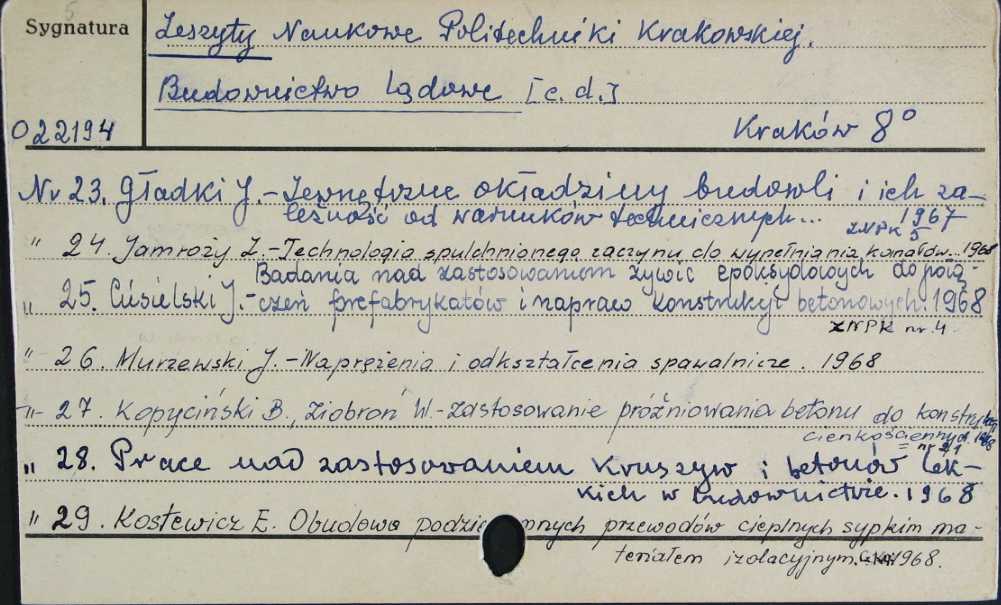 Sygnatura
Zeszyty Naukowe Politechniki Krakowskiej.
Budownictwo Lądowe [c.d.]
022194
Kraków 8°
Nr 23. Gładki J. - Zewnętrzne okładziny budowli i ich za-
leżność od warunków technicznych... 1967
ZNPK 5
" 24. Jamroży Z. - Technologia spulchnionego zaczynu do wypełniania kanałów.. 1968
Badania nad zastosowaniem żywic epoksydowych do połą-
" 25. Ciesielski J. - czeń prefabrykatów i napraw konstrukcji betonowych. 1968
ZNPK nr. 4.
" 26. Murzewski J. - Naprężenia i odkształcenia spawalnicze. 1968
" 27. Kopyciński B., Ziobroń W. - Zastosowanie próżniowania betonu do konstrukcji
cienkościennych. 1968
" 28. Prace nad zastosowaniem kruszyw i betonów lek-
kich w budownictwie. 1968
" 29. Kostewicz E. Obudowa przewodów cieplnych sypkim ma-
teriałem izolacyjnym. 1968.